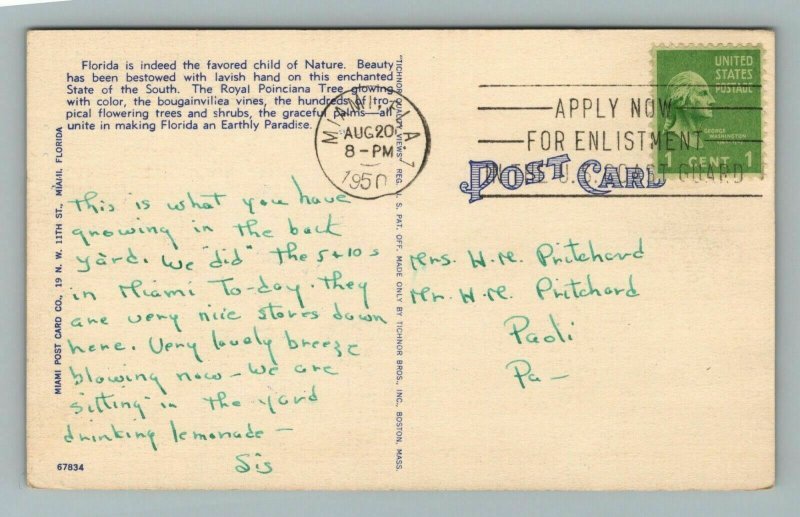 Florida is indeed the favored child of Nature. Beauty
has been bestowed with lavish hand on this enchanted
State of the South. The Royal Poinciana Tree glowing
with color, the bougainvillea vines, the hundreds of tro-
pical flowering trees and shrubs, the graceful palms—all
unite in making Florida an Earthly Paradise.
MIAMI POST CARD CO., 19 N. W. 11TH ST., MIAMI, FLORIDA
This is what you have
growing in the back
yard. We "did" the 5+10s
in Miami To-day. They
are very nice stores down
here. Very lovely breeze
blowing now - We are
sitting in the yard
drinking lemonade -
Sis
67834
"TICHNOR QUALITY VIEWS" REG. U. S. PAT. OFF. MADE ONLY BY TICHNOR BROS., INC., BOSTON, MASS.
MIAMI, FLA. 7
AUG 20
8 - PM
1950
APPLY NOW
FOR ENLISTMENT
IN THE U.S. COAST GUARD
UNITED
STATES
POSTAGE
GEORGE
WASHINGTON
1 CENT 1
POST CARD
Mrs. W. M. Pritchard
Mr. W. M. Pritchard
Paoli
Pa -